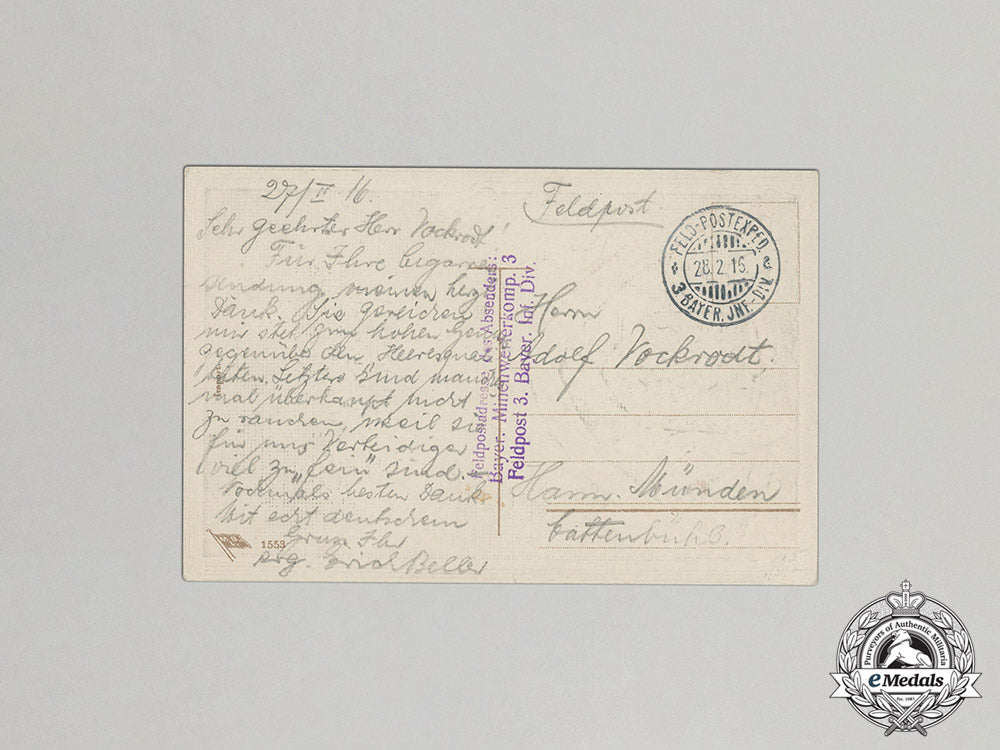 27/II 16.
Sehr geehrter Herr Vockrodt!
Für Ihre
sendung meinen herz.
Dank. Die
mir stets zum hohen
gegenüber den
Letztere sind
mal überhaupt nicht
zu rauchen, weil sie
für uns Verteidiger
viel zu „fein“ sind.
Nochmals besten Dank
Mit echt deutschem
Gruss Ihr
Erich Beller
1553
Feldpostadresse des Absenders:
Bayer. Minenwerferkomp. 3
Feldpost 3. Bayer. Inf. Div.
Feldpost.
FELD-POSTEXPED.
28.2.16.
3 BAYER. JNF.-DIV.
Herrn
Adolf Vockrodt.
Hann. Münden
Cattenbühl.
Purveyors of Authentic Militaria
eMedals
Est. 1997